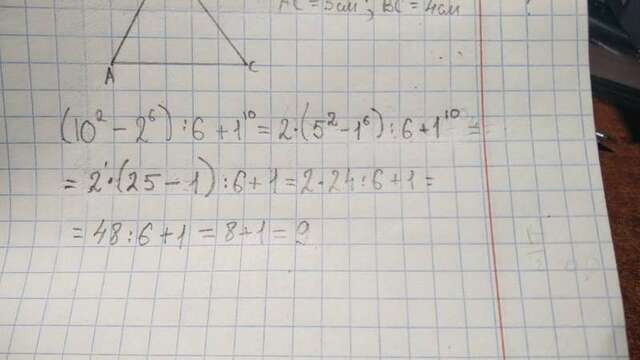 AC = 5см; BC = 4см
A C
(10² - 2⁶) : 6 + 1¹⁰ = 2·(5² - 1⁶) : 6 + 1¹⁰ =
= 2·(25 - 1) : 6 + 1 = 2·24 : 6 + 1 =
= 48 : 6 + 1 = 8 + 1 = 9